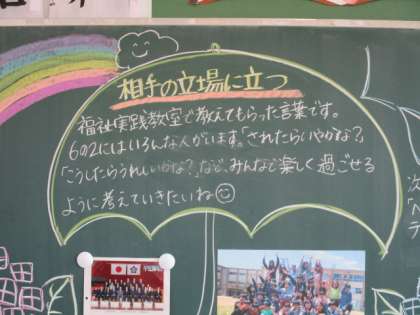 相手の立場に立つ
福祉実践教室で教えてもらった言葉です。
6の2にはいろんな人がいます。「されたらいやかな？」
「こうしたらうれしいかな？」など、みんなで楽しく過ごせる
ように考えていきたいね